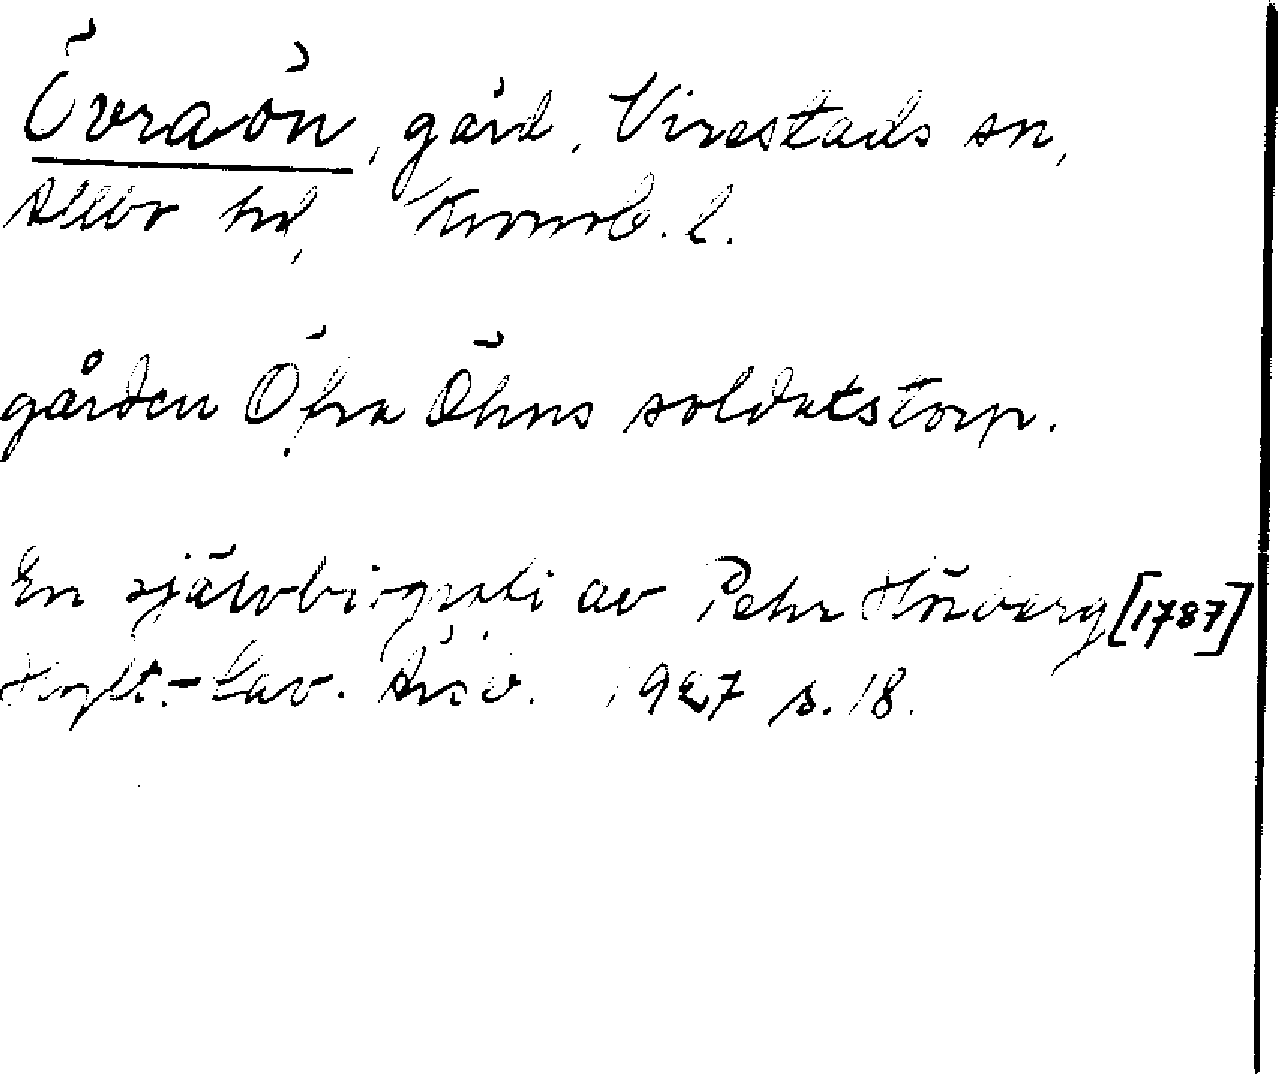 Övraön, gård, Virestads sn,
Allbo hd, Kronob. l.
gården Öfra Öhns soldatstorp.
En självbiografi av Pehr Hörberg [1787]
Hylt.-Cav. Årsb. 1927 s. 18.